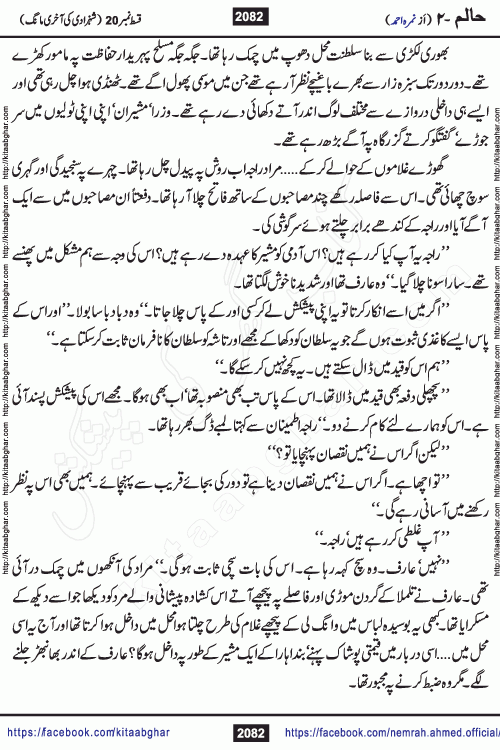 حالم -۲ (از نمرہ احمد)
2082
قسط نمبر 20 (شہزادی کی آخری مانگ)
بھوری لکڑی سے بنا سلطنت محل دھوپ میں چمک رہا تھا۔ جگہ جگہ مسلح پہریدار حفاظت پہ مامور کھڑے
تھے۔ دور دور تک سبزہ زار سے بھرے باغیچے نظر آ رہے تھے جن میں موسمی پھول اگے تھے۔ ٹھنڈی ہوا چل رہی تھی اور
ایسے ہی داخلی دروازے سے مختلف لوگ اندر آتے دکھائی دے رہے تھے۔ وزرا‘ مشیران‘ اپنی اپنی ٹولیوں میں سر
جوڑے‘ گفتگو کرتے گزرگاہ پہ آگے بڑھ رہے تھے۔
گھوڑے غلاموں کے حوالے کر کے ..... مراد راجہ اب روش پہ پیدل چل رہا تھا۔ چہرے پہ سنجیدگی اور گہری
سوچ چھائی تھی۔ اس سے فاصلہ رکھے چند مصاحبوں کے ساتھ فاتح چلا آ رہا تھا۔ دفعتاً ان مصاحبوں میں سے ایک
آگے آیا اور راجہ کے کندھے برابر چلتے ہوئے سرگوشی کی۔
’’راجہ یہ آپ کیا کر رہے ہیں؟ اس آدمی کو مشیر کا عہدہ دے رہے ہیں؟ اس کی وجہ سے ہم مشکل میں پھنسے
تھے۔ سارا سونا چلا گیا۔‘‘ وہ عارف تھا اور شدید ناخوش لگتا تھا۔
’’اگر میں اسے انکار کرتا تو یہ اپنی پیشکش لے کر کسی اور کے پاس چلا جاتا۔‘‘ وہ دبا دبا سا بولا۔ ’’اور اس کے
پاس ایسے کاغذی ثبوت ہوں گے جو یہ سلطان کو دکھا کے مجھے اور تاشہ کو سلطان کا نافرمان ثابت کر سکتا ہے۔‘‘
’’ہم اس کو قید میں ڈال سکتے ہیں۔ یہ کچھ نہیں کر سکے گا۔‘‘
’’پچھلی دفعہ بھی قید میں ڈالا تھا۔ اس کے پاس تب بھی منصوبہ تھا‘ اب بھی ہوگا۔ مجھے اس کی پیشکش پسند آئی
ہے۔ اس کو ہمارے لئے کام کرنے دو۔‘‘ راجہ اطمینان سے کہتا لمبے ڈگ بھر رہا تھا۔
’’لیکن اگر اس نے ہمیں نقصان پہنچایا تو؟‘‘
’’تو اچھا ہے۔ اگر اس نے ہمیں نقصان دینا ہے تو دور کی بجائے قریب سے پہنچائے۔ ہمیں بھی اس پہ نظر
رکھنے میں آسانی رہے گی۔‘‘
’’آپ غلطی کر رہے ہیں‘ راجہ۔‘‘
’’نہیں‘ عارف۔ وہ سچ کہہ رہا ہے۔ اس کی بات سچی ثابت ہوگی۔‘‘ مراد کی آنکھوں میں چمک در آئی
تھی۔ عارف نے تلملا کے گردن موڑی اور فاصلے پہ پیچھے آتے اس کشادہ پیشانی والے مرد کو دیکھا جو اسے دیکھ کے
مسکرایا تھا۔ کبھی یہ بوسیدہ لباس میں وانگ لی کے پیچھے غلام کی طرح چلتا ہوا محل میں داخل ہوا کرتا تھا اور آج یہ اسی
محل میں .... اسی دربار میں قیمتی پوشاک پہنے بنداہارا کے ایک مشیر کے طور پہ داخل ہوگا؟ عارف کے اندر بھانبھڑ جلنے
لگے۔ مگر وہ ضبط کرنے پہ مجبور تھا۔
http://kitaabghar.com http://kitaabghar.com http://kitaabghar.com http://kitaabghar.com http://kitaabghar.com
https://facebook.com/kitaabghar
2082
https://facebook.com/nemrah.ahmed.official/